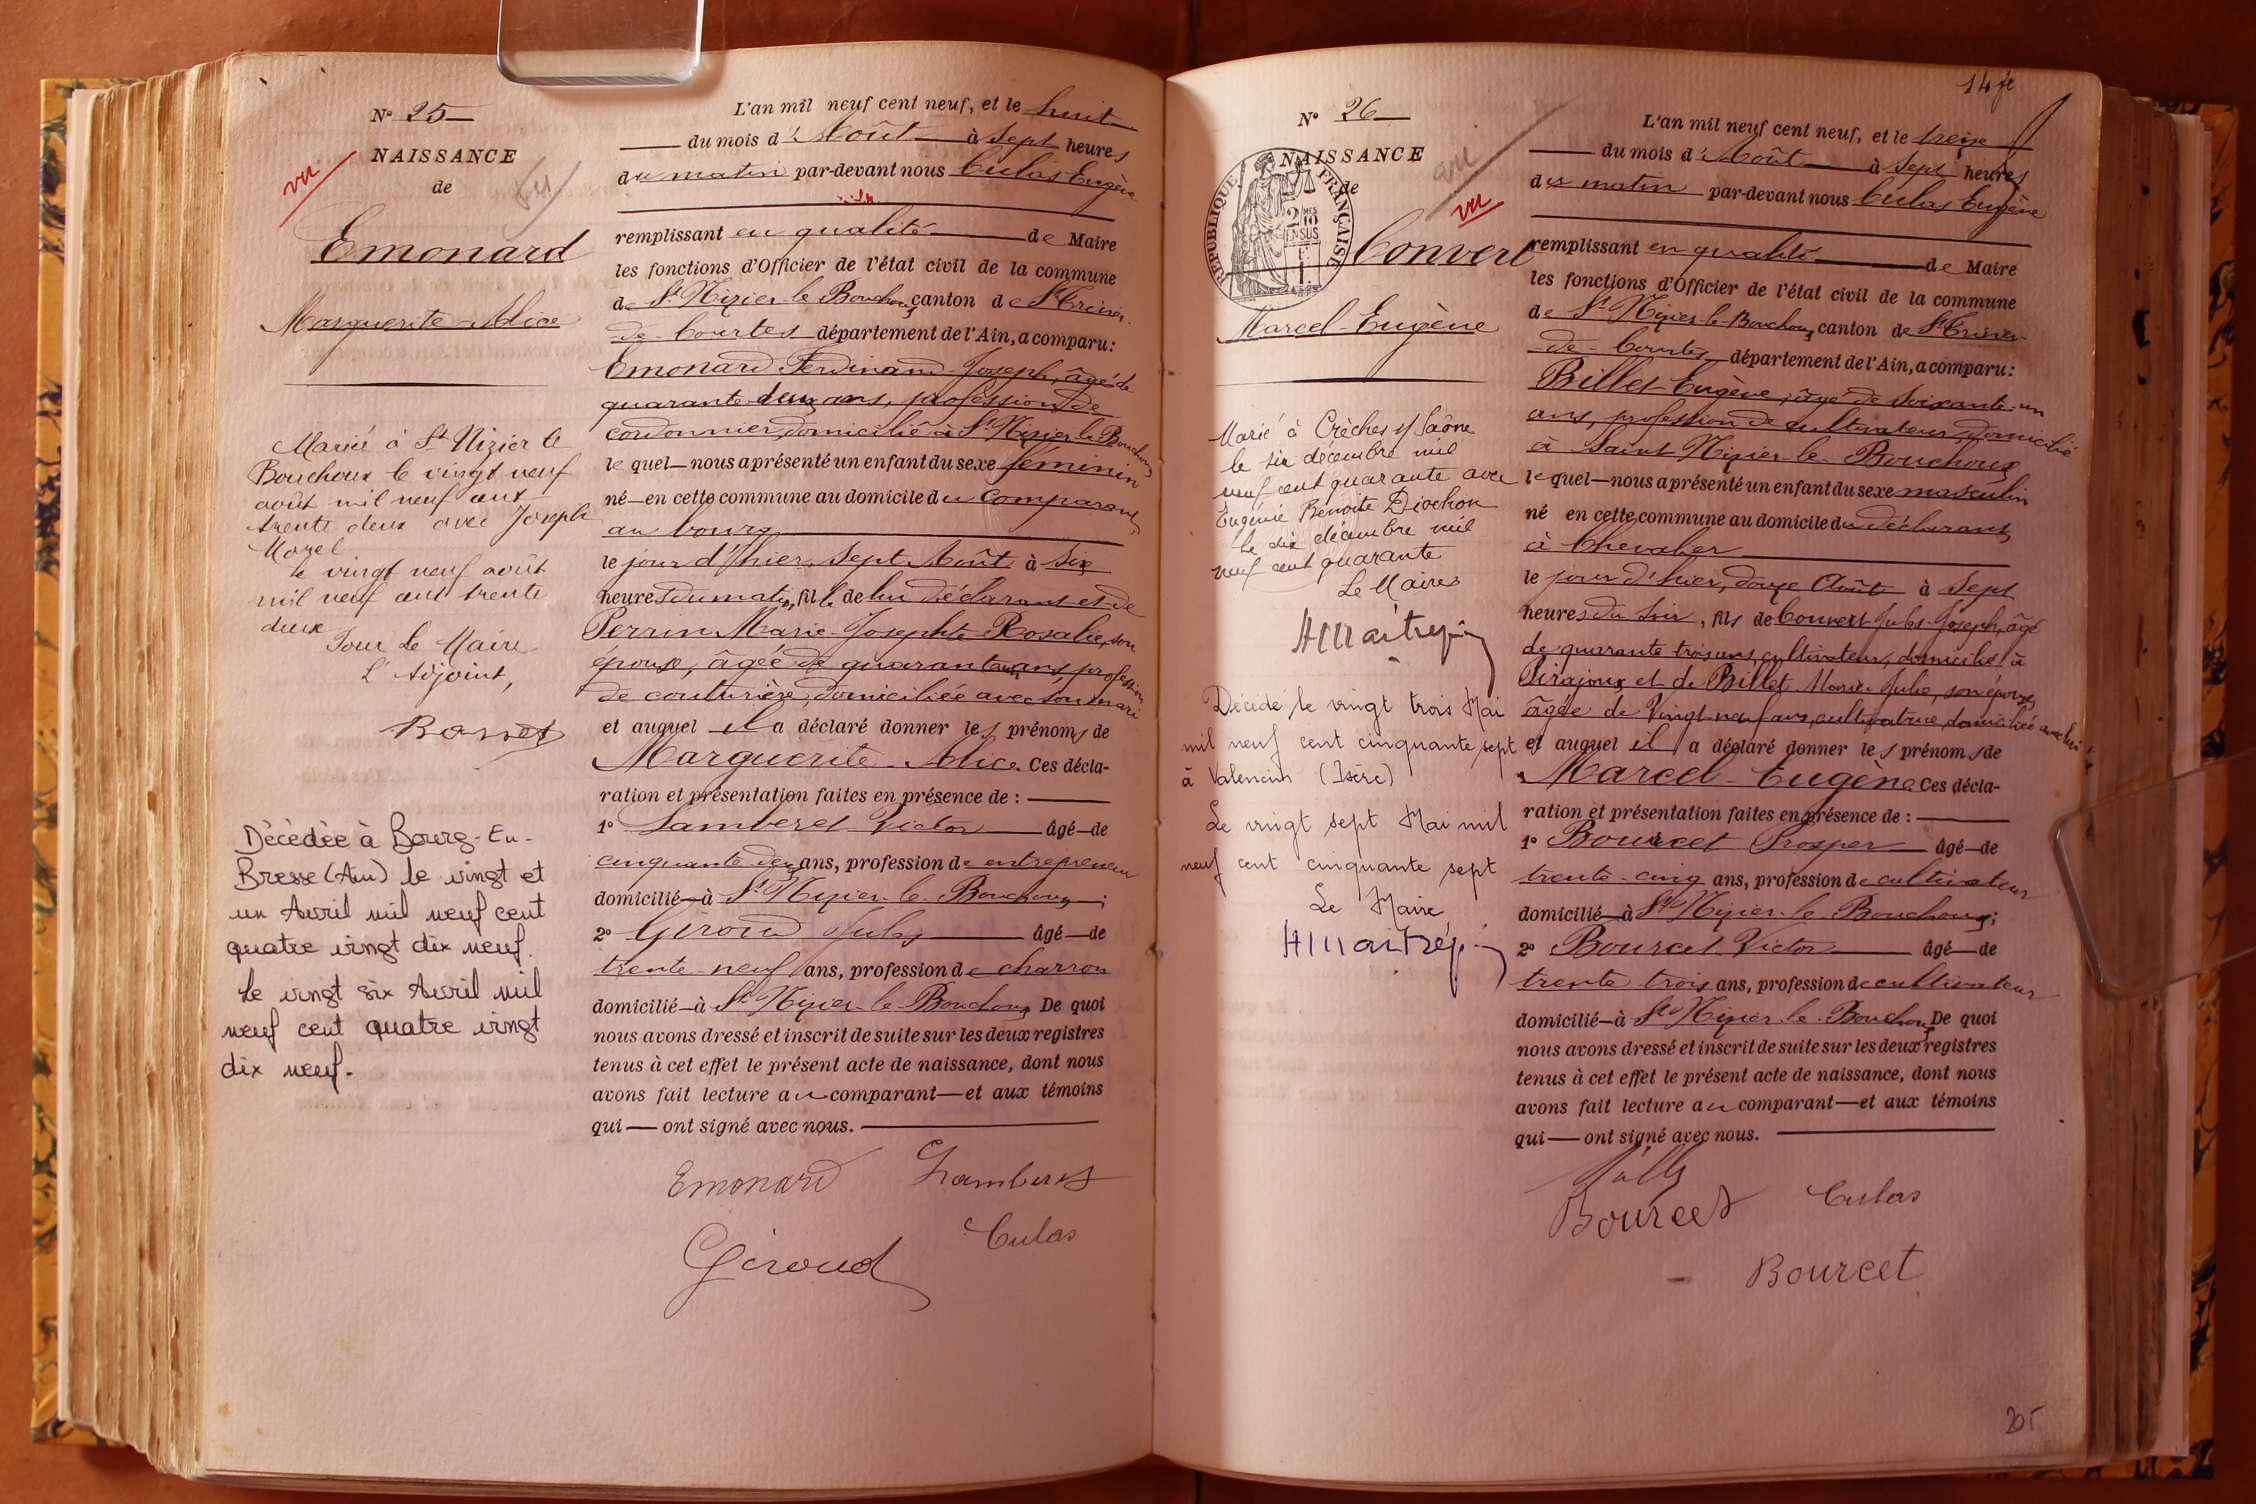 N° 25
NAISSANCE
de
vu
Emonard
Marguerite Alice
Marié à St Nizier le
Bouchoux le vingt neuf
août mil neuf cent
trente deux avec Joseph
Morel
le vingt neuf août
mil neuf cent trente
deux
Pour le Maire
L'Adjoint,
Décèdée à Bourg-En-
Bresse (Ain) le vingt et
un Avril mil neuf cent
quatre vingt dix neuf.
Le vingt six Avril mil
neuf cent quatre vingt
dix neuf.
L'an mil neuf cent neuf, et le huit
du mois d'Août à sept heures
du matin par-devant nous Culas Eugène
remplissant en qualité de Maire
les fonctions d'Officier de l'état civil de la commune
de St Nizier-le-Bouchoux canton de St Trivier-
de-Courtes département de l'Ain, a comparu:
Emonard Ferdinand Joseph, âgé de
quarante-deux ans, profession de
cordonnier, domicilié à St Nizier-le-Bouchoux
lequel nous a présenté un enfant du sexe féminin
né en cette commune au domicile du comparant,
au bourg
le jour d'hier, sept Août à six
heures du matin, fille de lui déclarant et de
Perrin Marie-Josephte Rosalie, son
épouse, âgée de quarante ans, profession
de couturière, domiciliée avec son mari
et auquel il a déclaré donner les prénoms de
Marguerite-Alice. Ces décla-
ration et présentation faites en présence de :
1° Lamberet Victor âgé de
cinquante-deux ans, profession de entrepreneur
domicilié à St Nizier-le-Bouchoux ;
2° Giroud Jules âgé de
trente-neuf ans, profession de charron
domicilié à St Nizier-le-Bouchoux De quoi
nous avons dressé et inscrit de suite sur les deux registres
tenus à cet effet le présent acte de naissance, dont nous
avons fait lecture au comparant et aux témoins
qui ont signé avec nous.
Emonard Lamberet
Giroud Culas
14
N° 26
NAISSANCE
de
REPUBLIQUE FRANÇAISE
vu
Convert
Marcel-Eugène
Marié à Crèches s/ Saône
le six décembre mil
neuf cent quarante avec
Eugénie Benoite Diochon
le dix décembre mil
neuf cent quarante
Le Maire
Décédé le vingt trois Mai
mil neuf cent cinquante sept
à Valencin (Isère)
Le vingt sept Mai mil
neuf cent cinquante sept
Le Maire
L'an mil neuf cent neuf, et le treize
du mois d'Août à sept heures
du matin par-devant nous Culas Eugène
remplissant en qualité de Maire
les fonctions d'Officier de l'état civil de la commune
de St Nizier-le-Bouchoux canton de St Trivier-
de-Courtes département de l'Ain, a comparu:
Billet Eugène, âgé de soixante-un
ans, profession de cultivateur, domicilié
à Saint Nizier-le-Bouchoux
lequel nous a présenté un enfant du sexe masculin
né en cette commune au domicile du déclarant,
à Chevalier
le jour d'hier, douze Août à sept
heures du soir, fils de Convert Jules-Joseph, âgé
de quarante trois ans, cultivateur, domicilié à
Pirajoux et de Billet Marie-Julie, son épouse,
âgée de vingt-neuf ans, cultivatrice, domiciliée avec lui
et auquel il a déclaré donner les prénoms de
Marcel-Eugène Ces décla-
ration et présentation faites en présence de :
1° Bourcet Prosper âgé de
trente-cinq ans, profession de cultivateur
domicilié à St Nizier-le-Bouchoux;
2° Bourcet Victor âgé de
trente trois ans, profession de cultivateur
domicilié à St Nizier-le-Bouchoux De quoi
nous avons dressé et inscrit de suite sur les deux registres
tenus à cet effet le présent acte de naissance, dont nous
avons fait lecture au comparant et aux témoins
qui ont signé avec nous.
Bourcet Culas
Bourcet